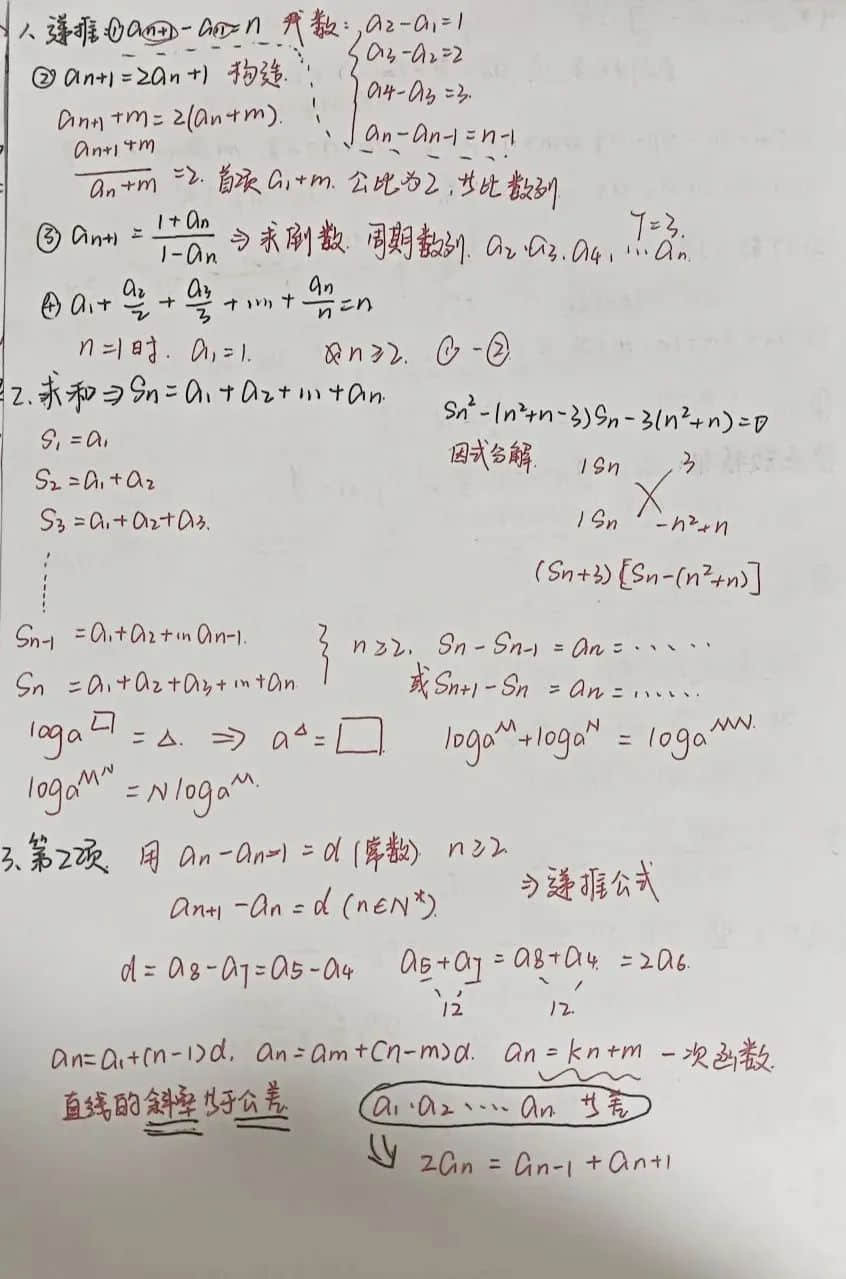 1、递推:①an+1-an=n 代数: a2-a1=1
a3-a2=2
②an+1=2an+1 构造.
a4-a3=3.
an+1+m=2(an+m).
an-an-1=n-1
an+1+m/an+m=2. 首项a1+m. 公比为2,等比数列.
③an+1=1+an/1-an⇒求倒数.周期数列.a2、a3、a4、…an. T=3.
④a1+a2/2+a3/3+…+an/n=n
n=1时. a1=1. 当n≥2. ①-②.
2、求和⇒Sn=a1+a2+…+an.
Sn²-(n²+n-3)Sn-3(n²+n)=0
S1=a1
因式分解. 1Sn 3
S2=a1+a2
1Sn -n²+n
S3=a1+a2+a3.
(Sn+3)[Sn-(n²+n)]
Sn-1=a1+a2+…an-1.
Sn=a1+a2+a3+…+an.
} n≥2. Sn-Sn-1=an=……
或Sn+1-Sn=an=……
loga□=△. ⇒ a^△=□. logaM+logaN=logaMN.
logaM^N=NlogaM.
3、第22项. 用an-an-1=d(常数) n≥2.
an+1-an=d(n∈N*). ⇒递推公式
d=a8-a7=a5-a4 a5+a7=a8+a4.=2a6.
12 12.
an=a1+(n-1)d. an=am+(n-m)d. an=kn+m 一次函数.
直线的斜率等于公差. a1、a2、…、an. 等差
2an=an-1+an+1